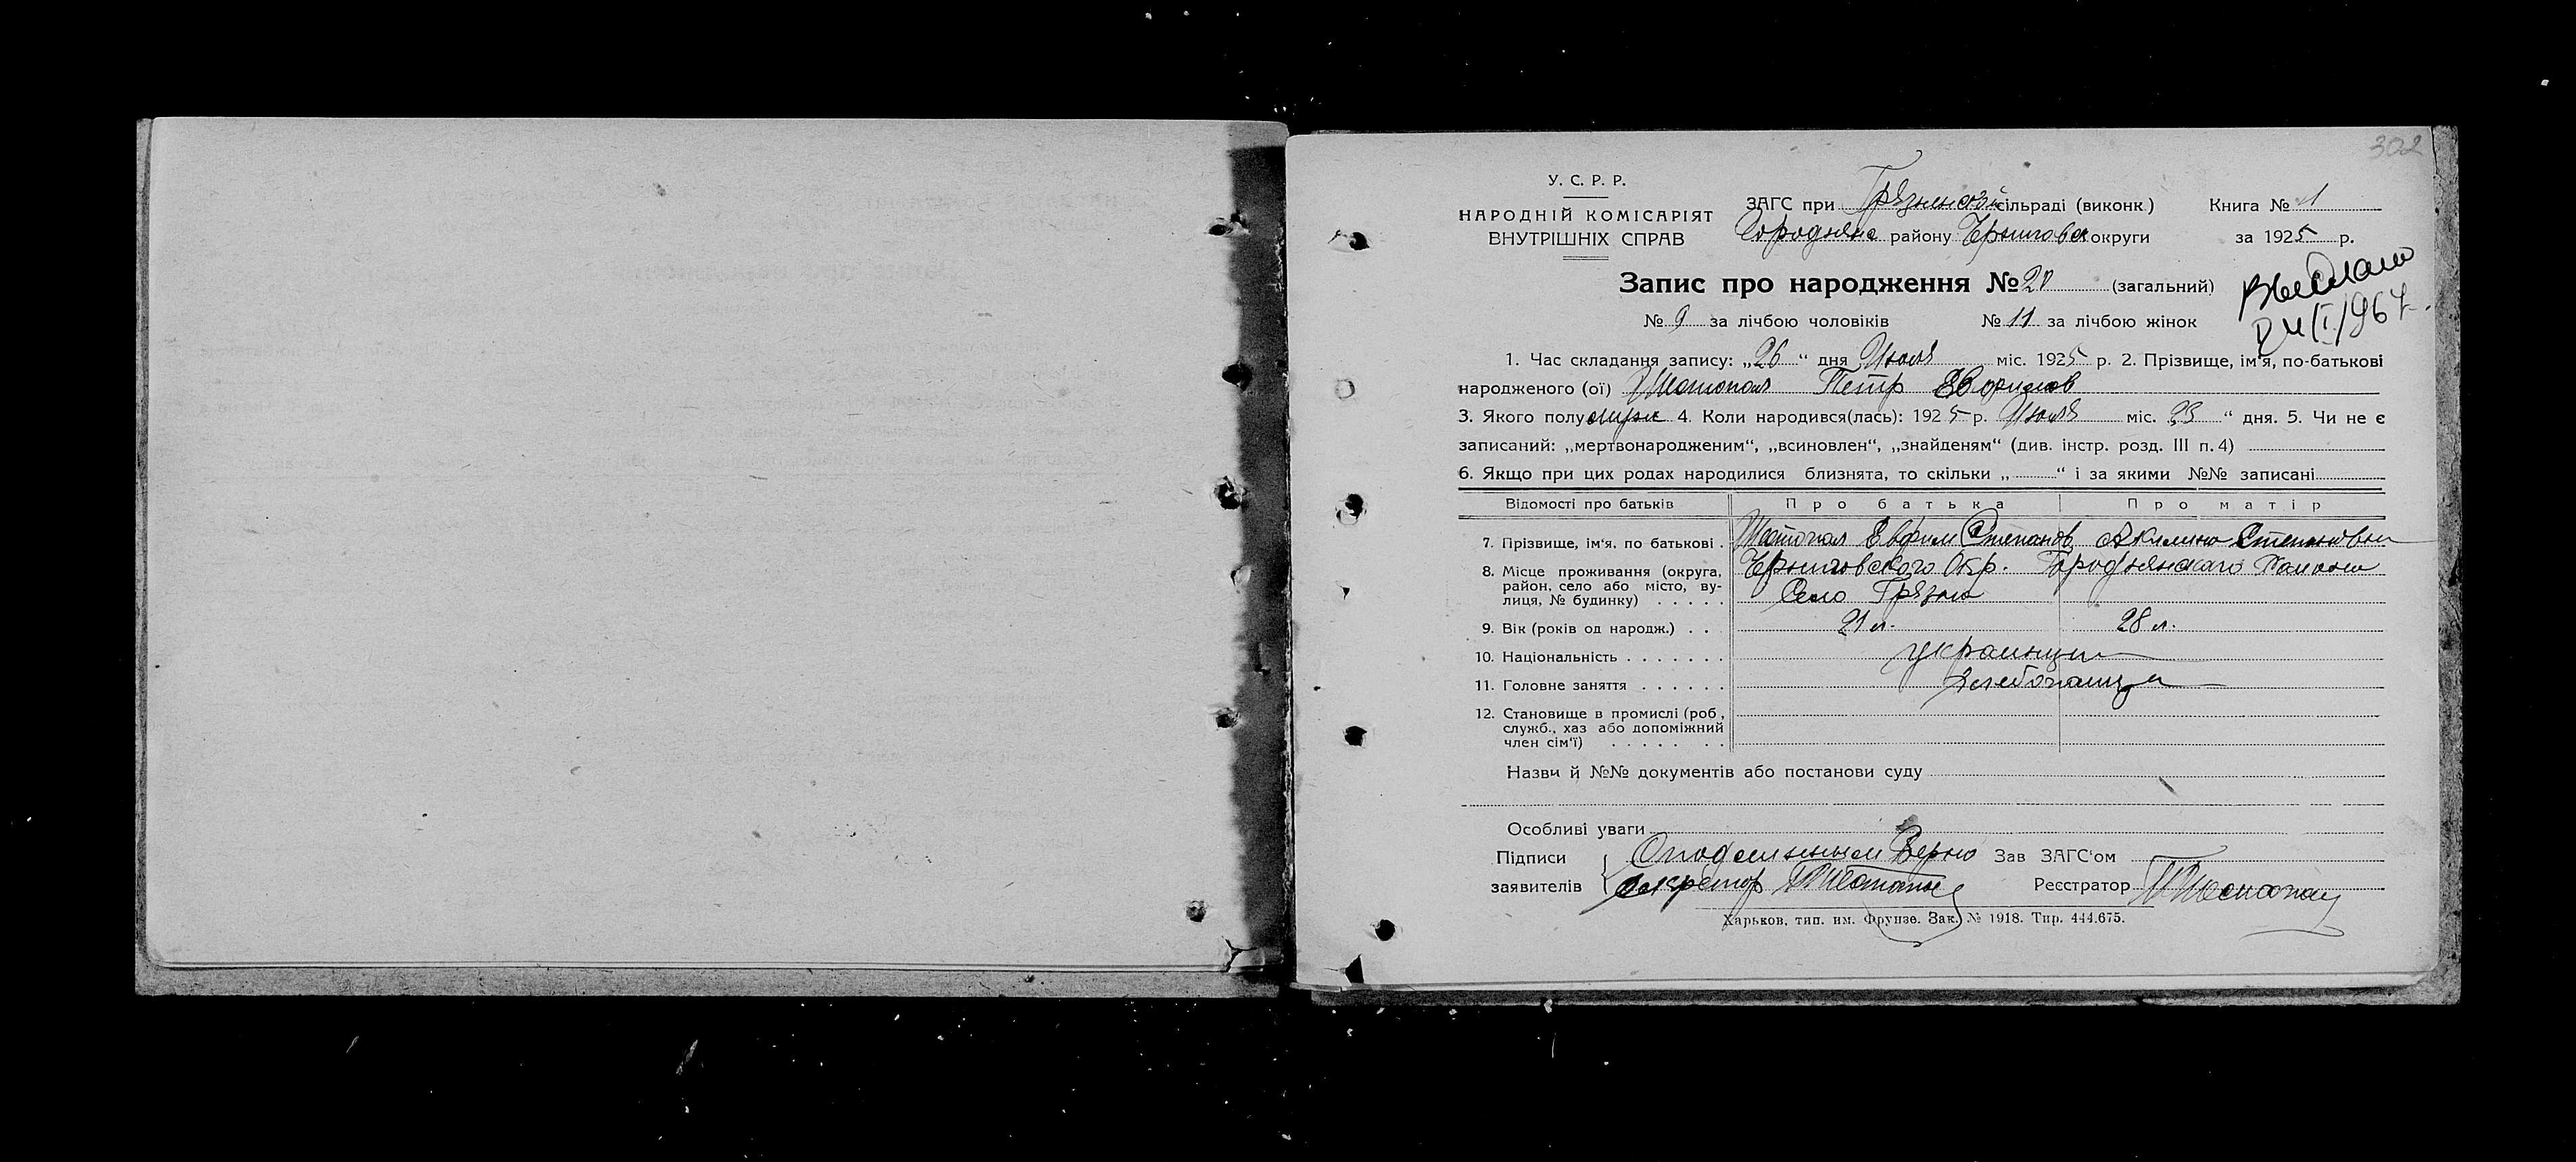 302
У. С. Р. Р.
НАРОДНІЙ КОМІСАРІЯТ
ВНУТРІШНІХ СПРАВ
ЗАГС при Грязненскі сільраді (виконк) Книга № 1
Городнянс району Черниговск округи за 1925 р.
Запис про народження № 20 (загальний)
Выслано
№ 9 за лічбою чоловіків № 11 за лічбою жінок
1. Час складання запису: „26“ дня Июля міс. 1925 р. 2. Прізвище, ім'я, по-батькові
народженого (ої) Шатопал Петр Евфимов
3. Якого полу мужс 4. Коли народився(лась): 1925 р. Июля міс. 23 “ дня. 5. Чи не є
записаний: „мертвонародженим“, „всиновлен“, „знайденям“ (див. інстр. розд. III п. 4)
6. Якщо при цих родах народилися близнята, то скільки „ “ і за якими №№ записані
Відомості про батьків Про батька Про матір
7. Прізвище, ім'я, по батькові. Шатопал Евфим Степанов Акилина Степановна
8. Місце проживання (округа, район, село або місто, вулиця, № будинку) Черниговского Окр. Городнянскаго Района
Село Грязна
9. Вік (років од народж.) 21 л. 28 л.
10. Національність украинцы
11. Головне заняття Хлебопашца
12. Становище в промислі (роб, служб., хаз або допоміжний член сім'ї)
Назви й №№ документів або постанови суду
Особливі уваги
Підписи Верно Зав ЗАГС'ом
заявителів Секретор Реєстратор
Харьков, тип. им. Фрунзе. Зак. № 1918. Тир. 444.675.